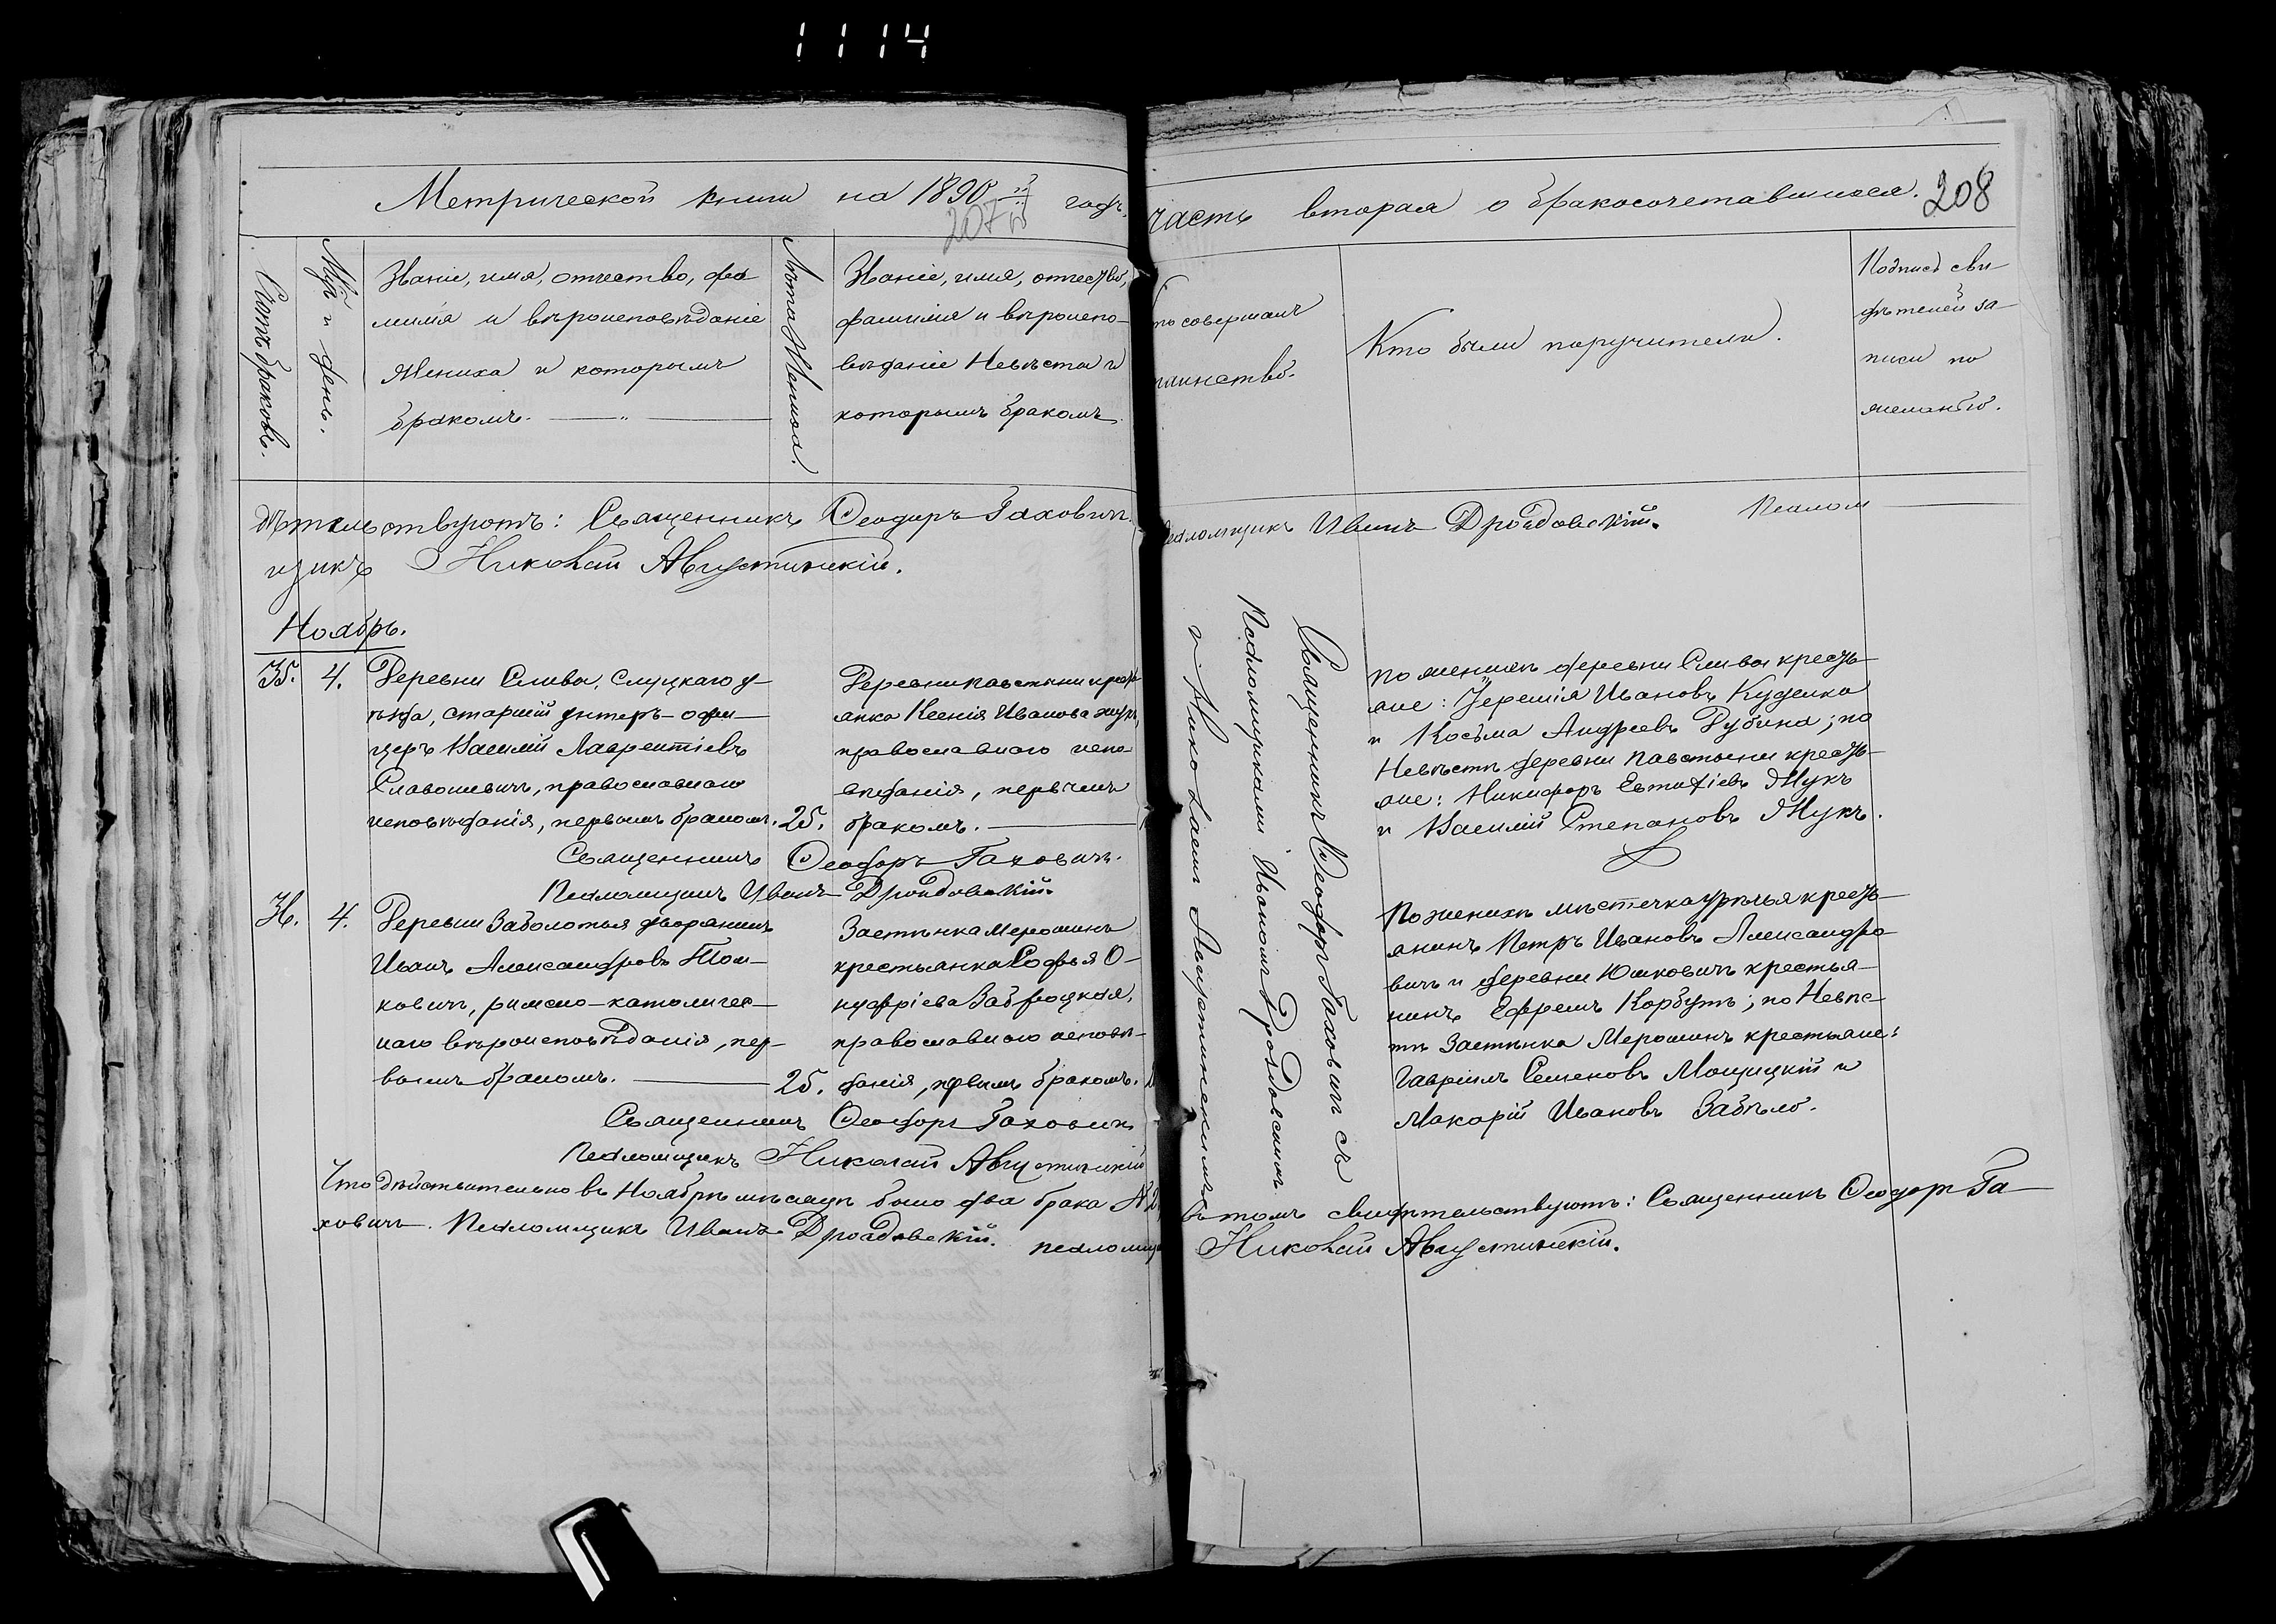 1114
Метрической книги на 1890 годъ,
207
часть вторая о бракосочетавшихся. 208
Счетъ браковъ.
Мѣс. и день.
Званіе, имя, отчество, фа
милія и вѣроисповѣданіе
Жениха и которымъ
бракомъ.
Лѣта Жениха.
Званіе, имя, отчество,
фамилія и вѣроиспо-
вѣданіе Невѣсты и
которымъ бракомъ
то совершалъ
таинство.
Кто были поручители.
Подпись сви-
дѣтелей за-
писи по
желанію.
дѣтельствуютъ: Священникъ Ѳеодоръ Гаховичъ.
Псаломщикъ Иванъ Дроздовскій. Псалом
щикъ Николай Августинскій.
Ноябрь.
35. 4.
Деревни Слива, Слуцкаго у-
ѣзда, старшій унтеръ-офи-
церъ Василій Лаврентіевъ
Славошевичъ, православнаго
исповѣданія, первымъ бракомъ. 25.
Деревни Павстыни кресть
янка Ксенія Иванова Жукъ,
православнаго испо-
вѣданія, первымъ
бракомъ.
Священникъ Ѳеодоръ Гаховичъ.
Псаломщикъ Иванъ Дроздовскій.
Священникъ Ѳеодоръ Гаховичъ съ
Псаломщиками Иваномъ Дроздовскимъ
и Николаемъ Августинскимъ
По женихѣ деревни Слива кресть-
яне: Іеремія Ивановъ Куделко
и Косьма Андреевъ Рубина; по
Невѣстѣ деревни Павстыни кресть-
яне: Никифоръ Евтихіевъ Жукъ
и Василій Степановъ Жукъ.
36. 4.
Деревни Заболотья дворянинъ
Иванъ Александровъ Том-
ковичъ, римско-католичес-
каго вѣроисповѣданія, пер-
вымъ бракомъ. 25.
Застѣнка Мерошинъ
крестьянка Софья О-
нуфріева Забродцкая,
православнаго исповѣ-
данія, первымъ бракомъ.
Священникъ Ѳеодоръ Гаховичъ
Псаломщикъ Николай Августинскій
По женихѣ мѣстечка Урѣчья кресть-
янинъ Петръ Ивановъ Александро
вичъ и деревни Юшковичъ крестья-
нинъ Ефремъ Корбутъ; по Невѣс-
тѣ Застѣнка Мерошинъ крестьяне:
Гавріилъ Семеновъ Мощицкій и
Макарій Ивановъ Забѣло.
Что дѣйствительно въ Ноябрѣ мѣсяцѣ было два брака № 2,
въ томъ свидѣтельствуютъ: Священникъ Ѳеодоръ Га-
ховичъ. Псаломщикъ Иванъ Дроздовскій. псаломщ
Николай Августинскій.